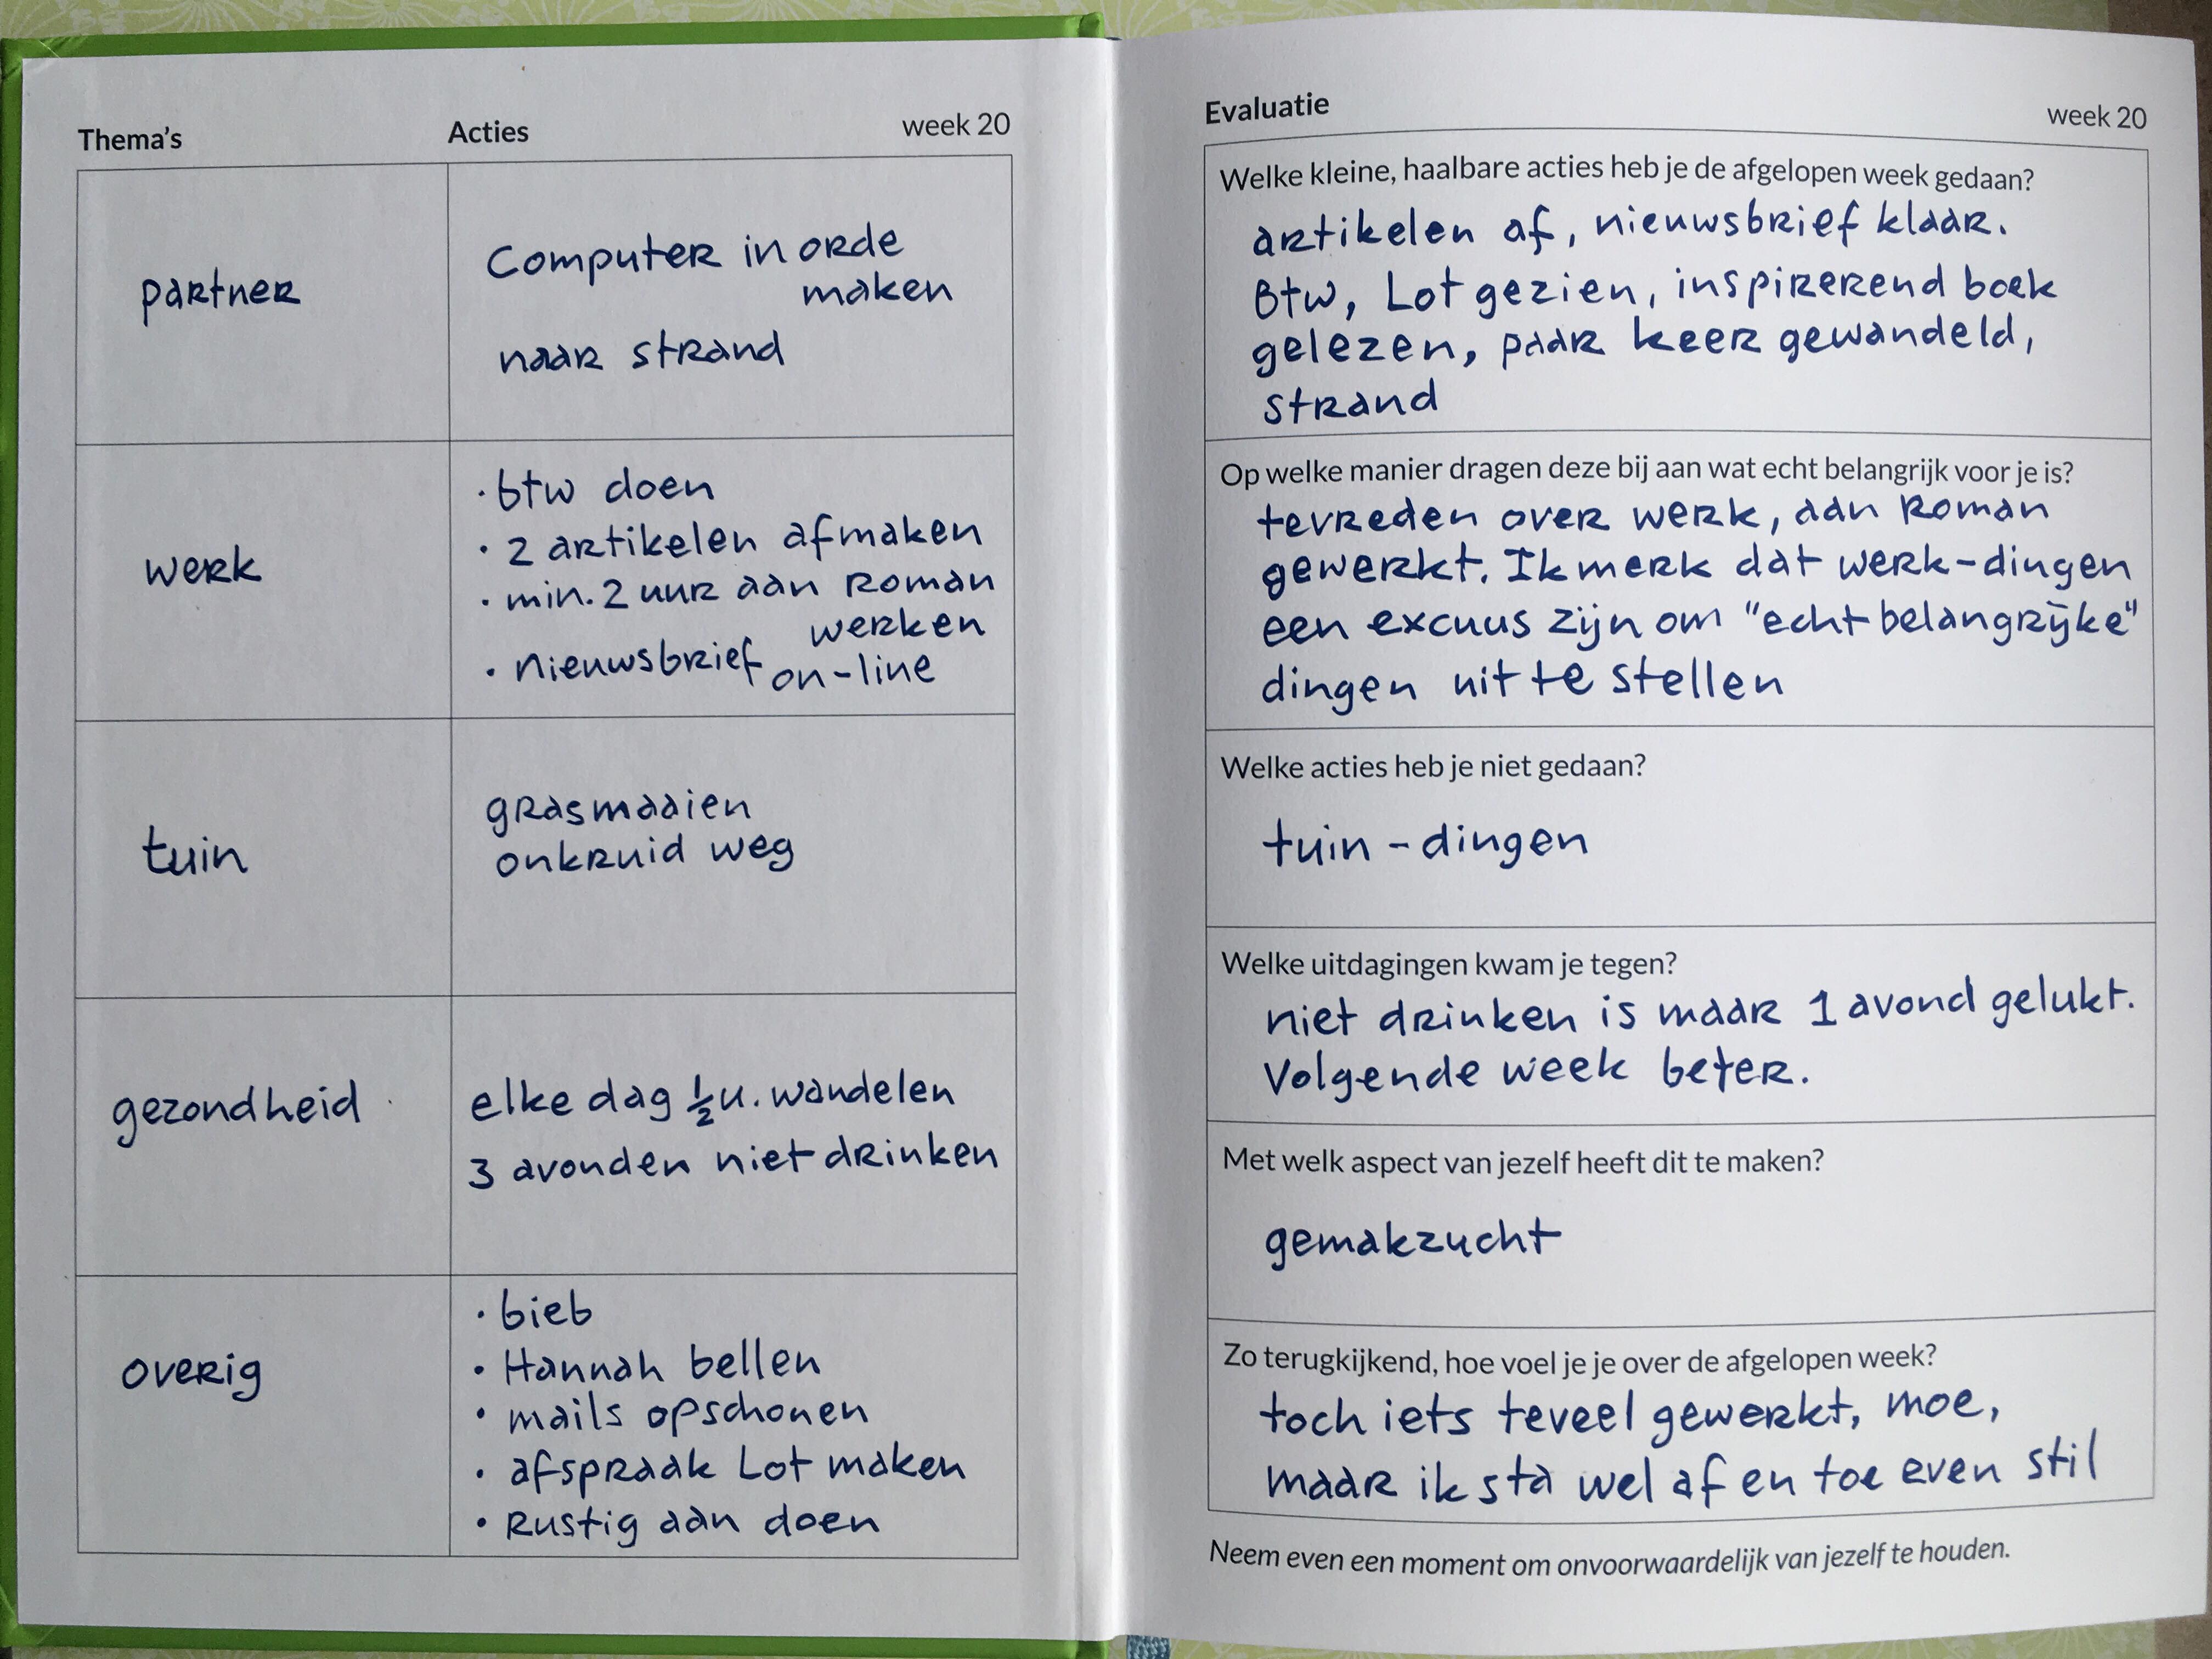 Thema's Acties week 20
partner
Computer in orde
maken
naar strand
werk
· btw doen
· 2 artikelen afmaken
· min. 2 uur aan roman
werken
· nieuwsbrief on-line
tuin
grasmaaien
onkruid weg
gezondheid
elke dag ½ u. wandelen
3 avonden niet drinken
overig
· bieb
· Hannah bellen
· mails opschonen
· afspraak Lot maken
· Rustig aan doen
Evaluatie week 20
Welke kleine, haalbare acties heb je de afgelopen week gedaan?
artikelen af, nieuwsbrief klaar.
Btw, Lot gezien, inspirerend boek
gelezen, paar keer gewandeld,
strand
Op welke manier dragen deze bij aan wat echt belangrijk voor je is?
tevreden over werk, aan roman
gewerkt. Ik merk dat werk-dingen
een excuus zijn om "echt belangrijke"
dingen uit te stellen
Welke acties heb je niet gedaan?
tuin-dingen
Welke uitdagingen kwam je tegen?
niet drinken is maar 1 avond gelukt.
Volgende week beter.
Met welk aspect van jezelf heeft dit te maken?
gemakzucht
Zo terugkijkend, hoe voel je je over de afgelopen week?
toch iets teveel gewerkt, moe,
maar ik sta wel af en toe even stil
Neem even een moment om onvoorwaardelijk van jezelf te houden.